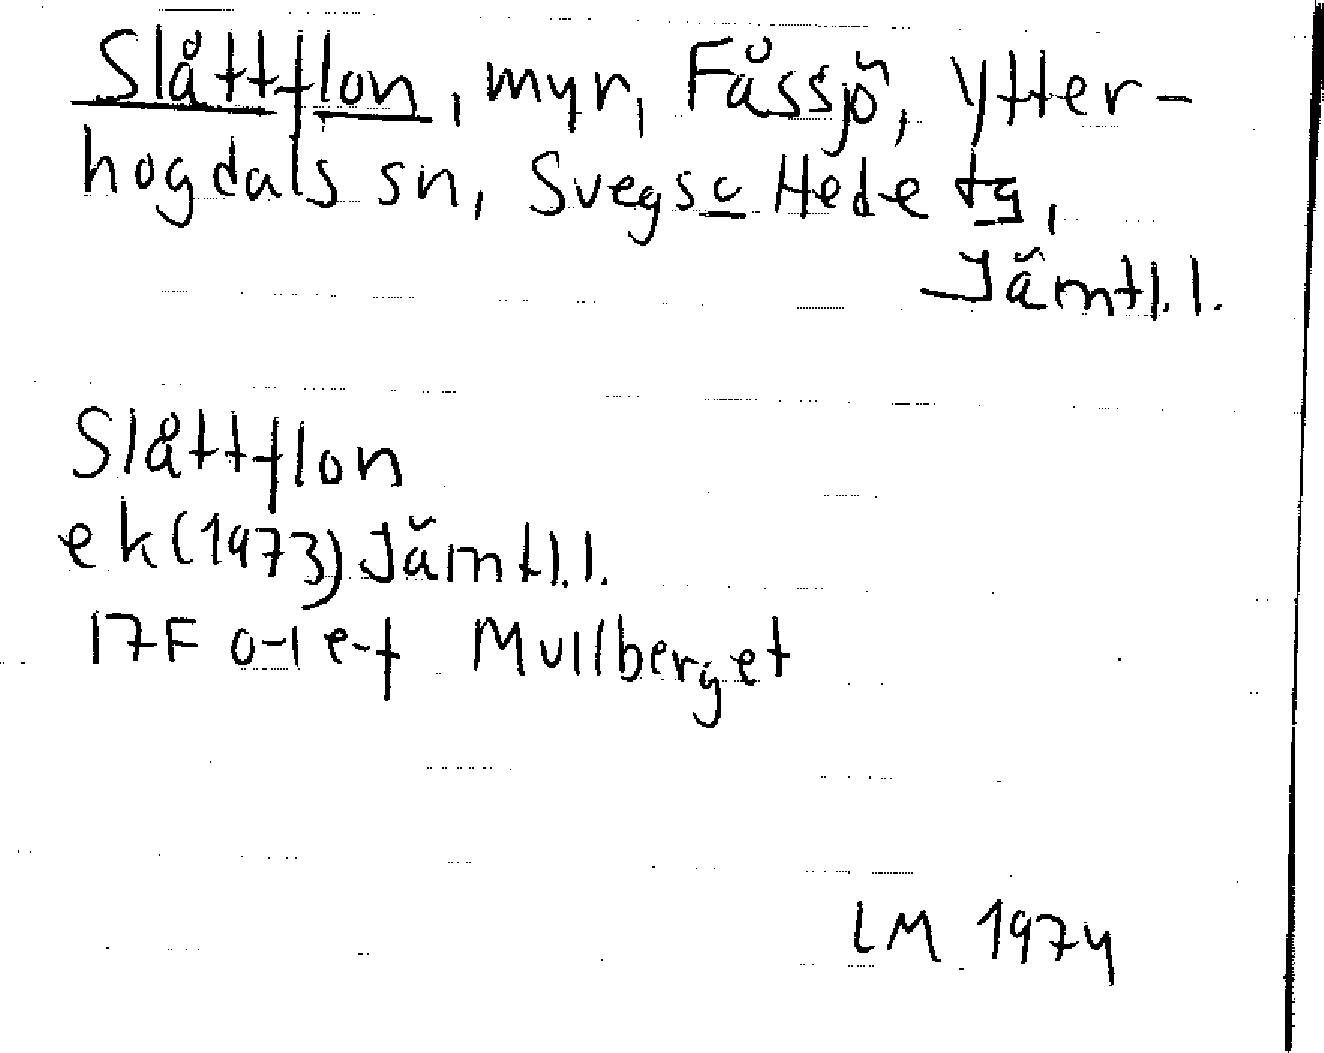 Slåttflon, myr, Fåssjö, Ytter-
hogdals sn, Svegs o Hede tg,
Jämtl.l.
Slåttflon
ek(1973) Jämtl.l.
17F 0-1 e-f Mullberget
LM 1974